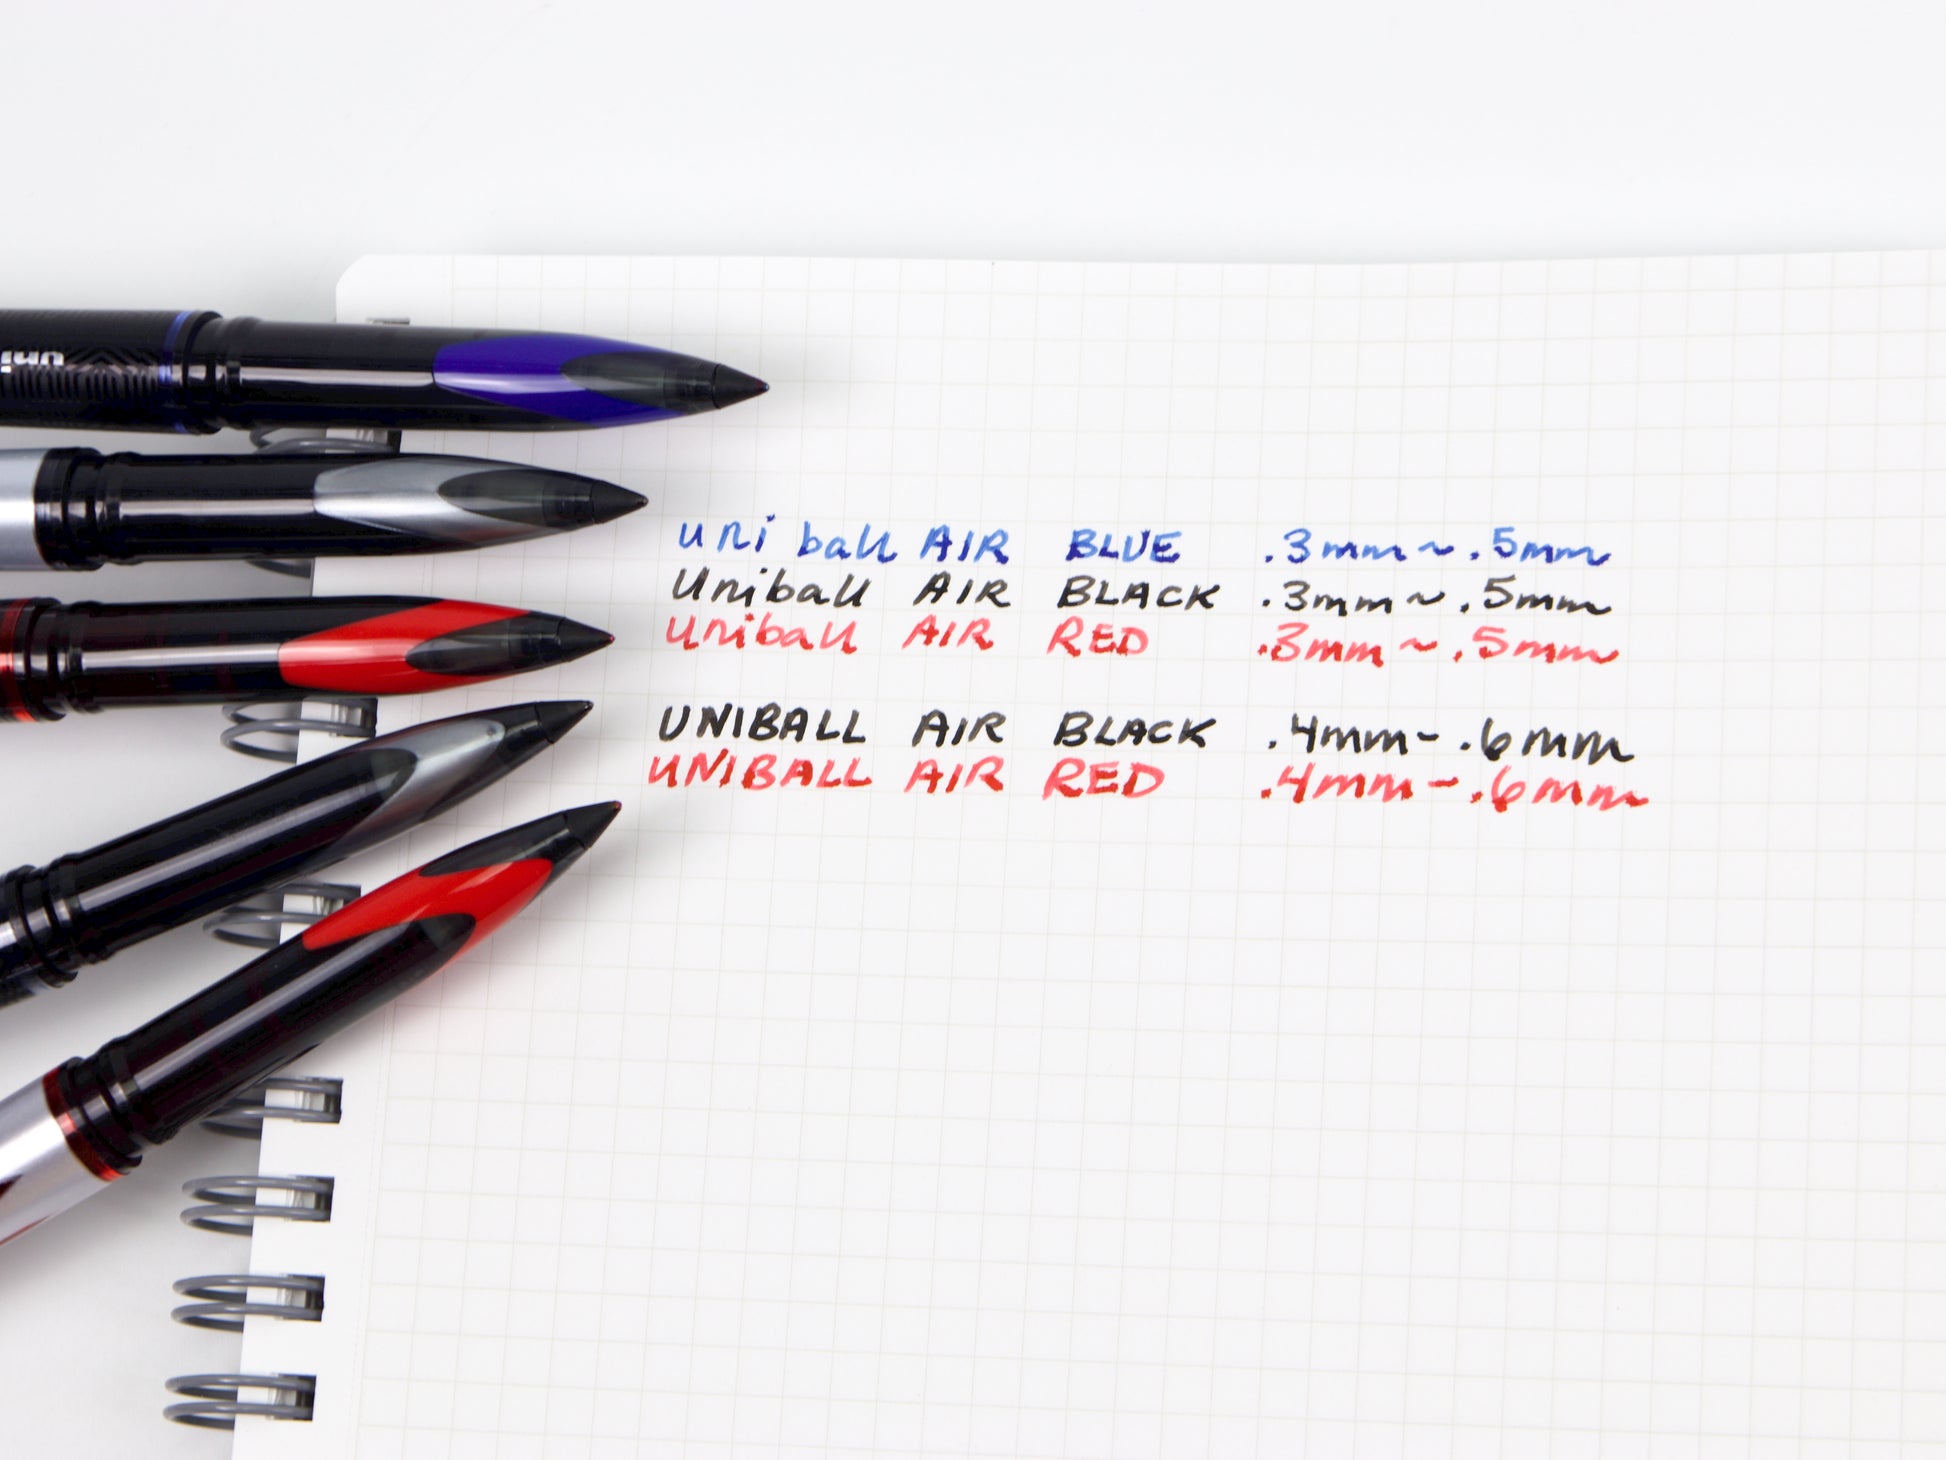 uni
uni ball AIR BLUE .3mm ~ .5mm
Uniball AIR BLACK .3mm ~ .5mm
Uniball AIR RED .3mm ~ .5mm
UNIBALL AIR BLACK .4mm - .6mm
UNIBALL AIR RED .4mm - .6mm